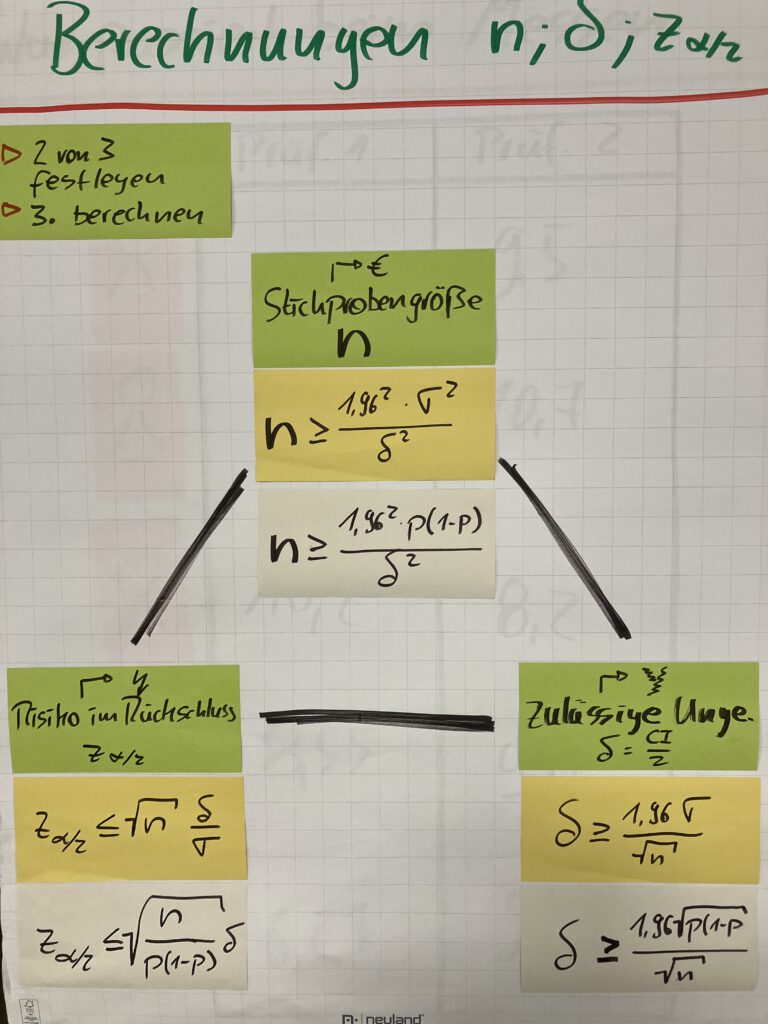 Berechnungen n; δ; z α/2
▷ 2 von 3
festlegen
▷ 3. berechnen
↱ €
Stichprobengröße
n
n ≥ 1,96² · σ² / δ²
n ≥ 1,96² · p(1-p) / δ²
Risiko im Rückschluss
z α/2
z α/2 ≤ √n δ/σ
z α/2 ≤ √(n / p(1-p)) δ
Zulässige Unge.
δ = CI/2
δ ≥ 1,96 σ / √n
δ ≥ 1,96 √p(1-p / √n
Prüf. 1
Prüf. 2
9,5
10,7
10,2
8,2
neuland